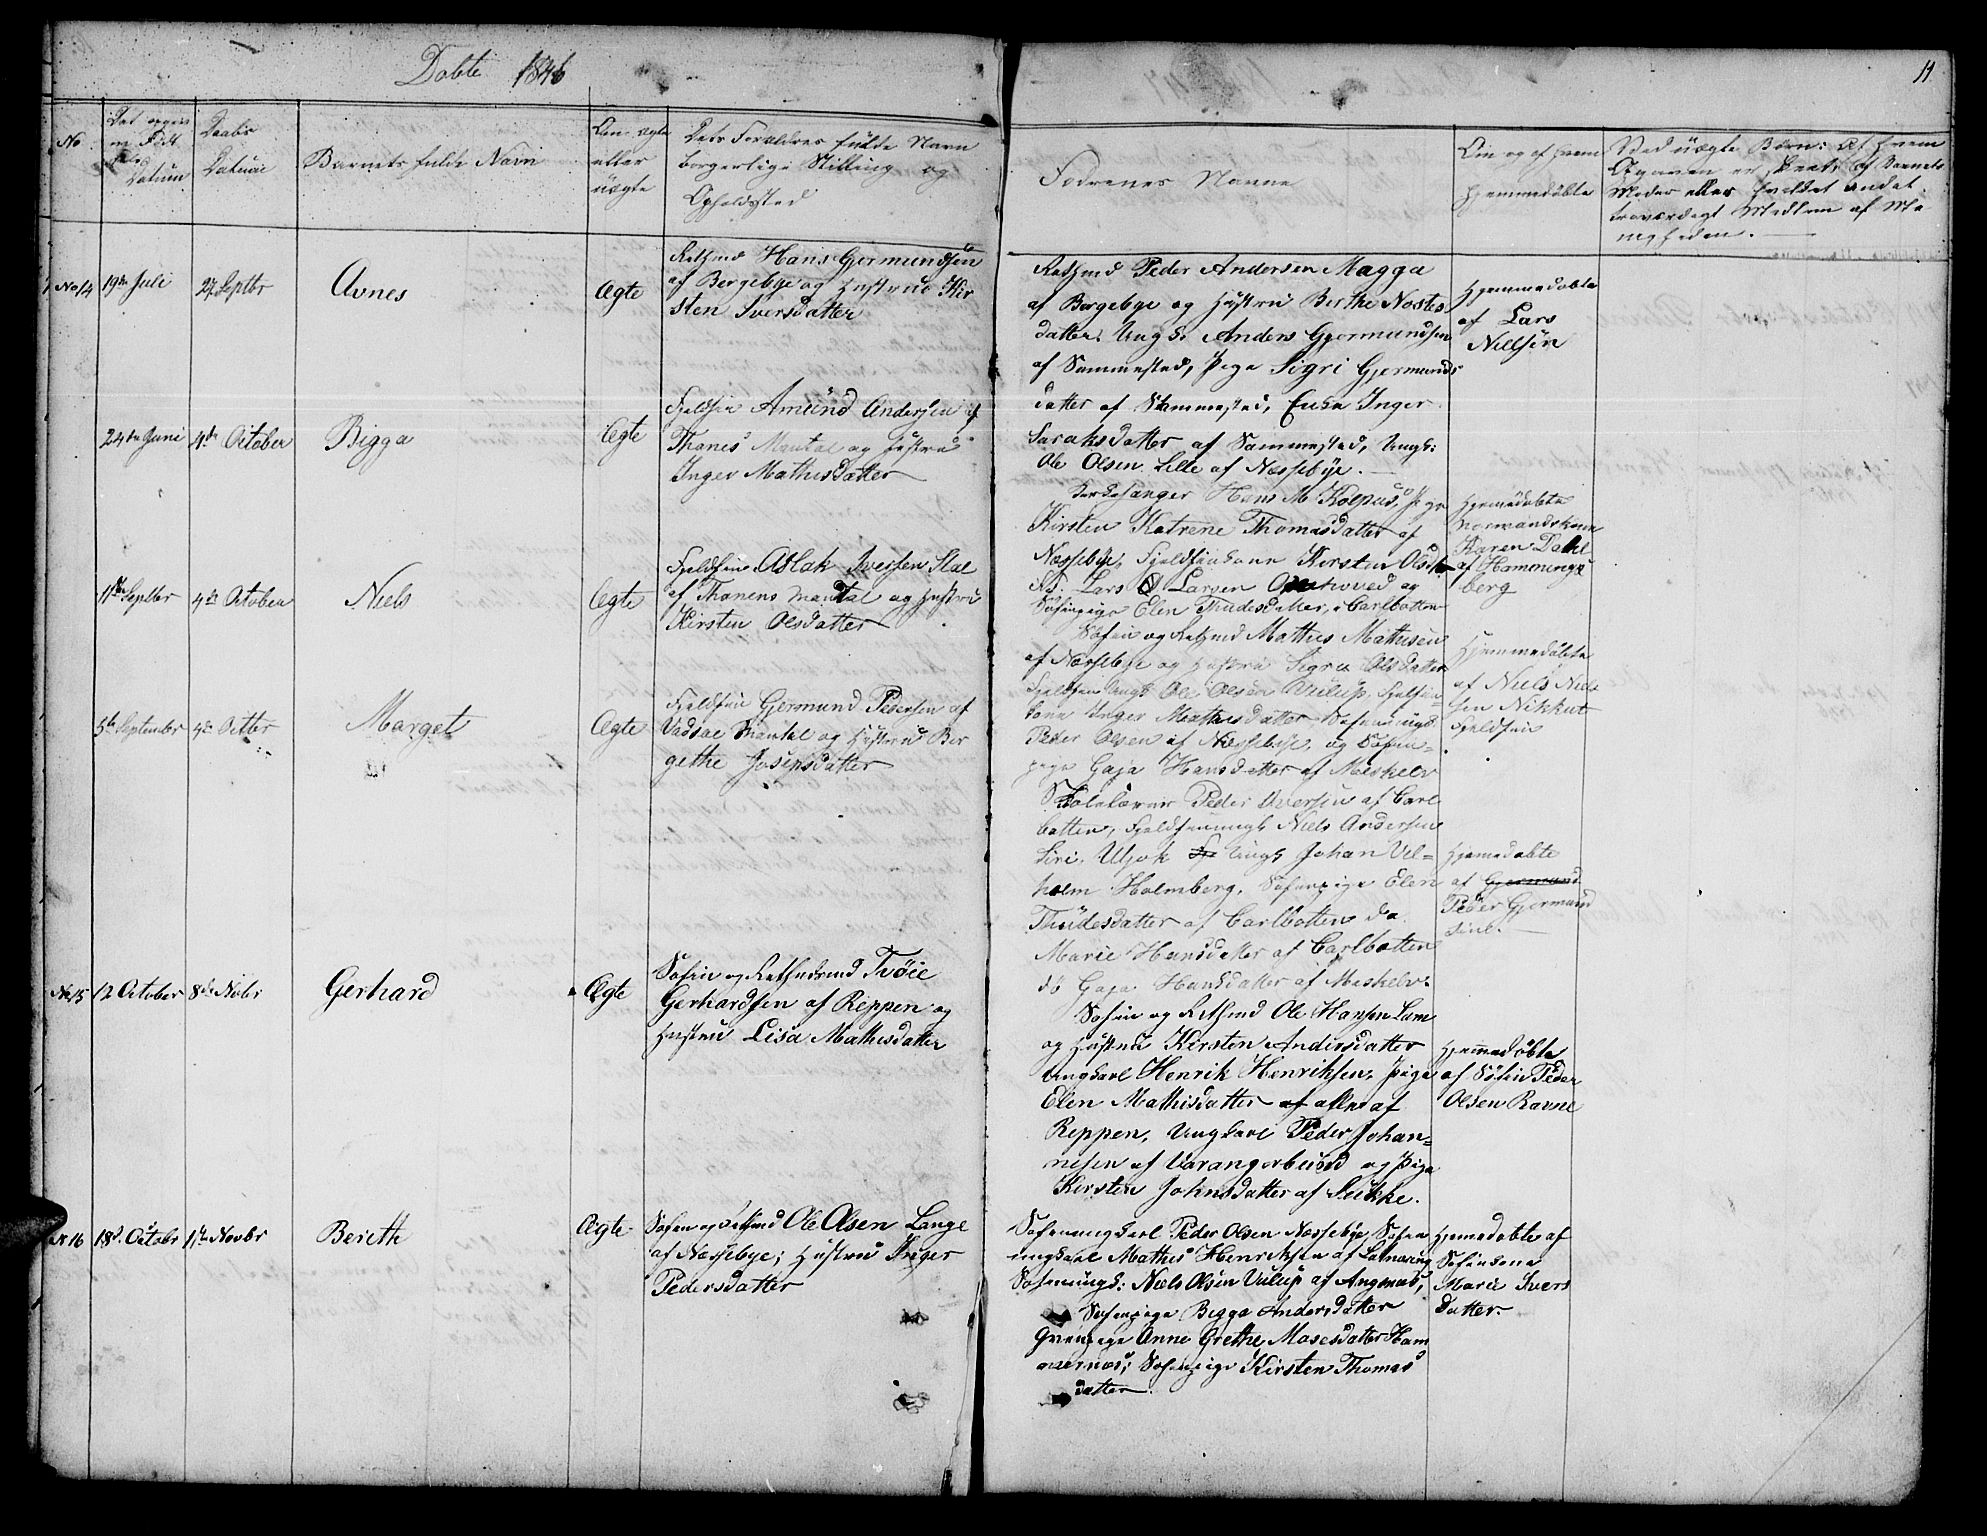 Døbte 1846
11
No
Datum
Daabs
Datum
Barnets fulde Navn
Om ægte
eller
uægte
Dets Forældres fulde Navn
borgerlige Stilling og
Opholdssted
Fadrenes Navne
Om og af hvem
hjemmedøbte
Ved uægte Børn: Af hvem
Opgaven er skeet, af Barnets
Moder eller hvilket andet
troværdigt Medlem af Me
nigheden.
No 14
19de Juli
27 Septbr
Avnes
Ægte
Retsmd Hans Gjermundsen
af Bergebye og Hustrue Kir
sten Iversdatter
Retsmd Peder Andersen Magga
af Bergebye og Hustru Berthe Nostes
datter. Ungk: Anders Gjermundsen
af Sammested, Pige Sigri Gjermunds
datter af Sammested, Enke Inger
Saraksdatter af Sammested, Ungk:
Ole Olsen Lille af Næssebye.
Hjemmedøbte
af Lars
Nielsen
24de Juni
4de October
Bigga
Ægte
Fjeldfin Amund Andersen af
Thanes Mantal og Hustru
Inger Mathisdatter
Kirkesanger Hans M. Kolpus, Pige
Kirsten Katrene Thomasdatter af
Næssebye, Fjeldfinkone Kirsten Olsdtr
Lars Larsen og
Søfinpige Elen Thudesdatter, Carlbotten
Hjemmedøbte
Normandskone
Karen Dahl
af Hamminge
berg
11de Septbr
4de October
Niels
Ægte
Fjeldfin Aslak Iversen Stal
af Thanens Mantal og Hustru
Kirsten Olsdatter
Søfin og Retsmd Mathis Mathisen
af Næssebye og Hustru Sigru Olsdatter
Fjeldfin Ungk Ole Olsen Vulup, Fjelfin-
kone Inger Mathisdatter Søfinungk
Peder Olsen af Næssebye, og Søfin=
pige Gaja Hansdatter af Meskelv
Hjemmedøbte
af Niels Niel
sen Nikkut
Fjeldfin
5te September
4de Octbr
Marget
Ægte
Fjeldfin Germund Pedersen af
Vadsøe Mantal og Hustru Ber
gethe Josepsdatter
Skolelærer Peder Iversen af Carl
botten, Fjeldfinungk Niels Andersen
Siri. Utjok Ungk Johan Vil=
helm Holmberg, Søfinpige Elen
Thudesdatter af Carlbotten do
Marie Hansdatter af Carlbotten
do Gaja Hansdatter af Meskelv.
Hjemedøbte
af Gjermund
Peder Gjermund
sen.
No 15
12 October
8de Nobr
Gerhard
Ægte
Søfin og Retsmd
Gerhardsen af Reppen og
Hustru Lisa Mathisdatter
Søfin og Retsmd Ole Hansen Lam
og Hustru Kirsten Andersdatter
Ungkarl Henrik Henriksen, Pige
Elen Mathisdatter af alle af
Reppen, Ungkarl Peder Johan=
nesen af Varangerbund og Pige
Kirsten Johnsdatter af Suikke.
Hjemmedøbte
af Søfin Peder
Olsen Ravne
No 16
18d. Octobr
11te Novbr
Bereth
Ægte
Søfin og Retsmd Ole Olsen Lange
af Næssebye; Hustrue Inger
Pedersdatter
Søfinungkarl Peder Olsen Næssebye, Søfin
ungkarl Mathis Henriksen af
Søfinungk: Niels Olsen Vulup af Angsnæs,
Søfinpige Bigga Andersdatter
pige Anne Grethe Mosesdatter Ham
mernæs; Søfinpige Kirsten Thomas
datter.
Hjemedøbte af
Søfinkone
Marie Ivers
datter.